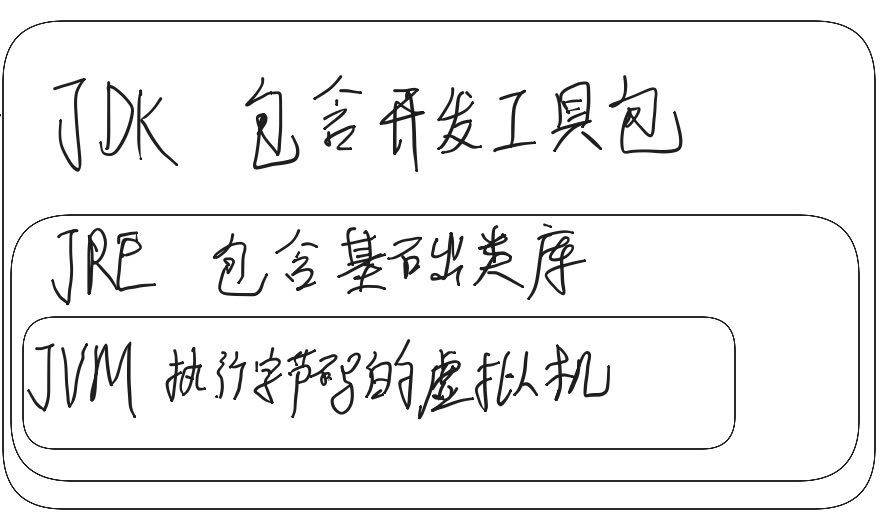 JDK 包含开发工具包
JRE 包含基础类库
JVM 执行字节码的虚拟机